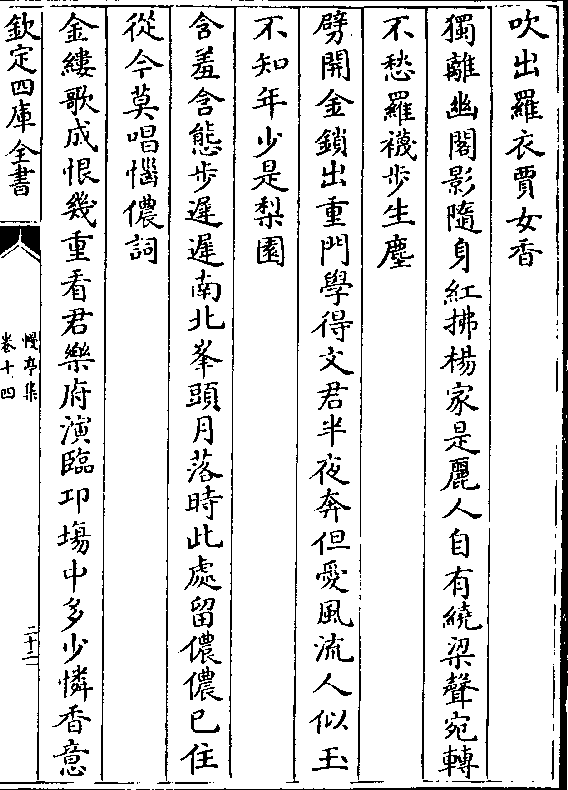 吹出羅衣賈女香
獨離幽閣影隨身紅拂楊家是麗人自有繞梁聲宛轉
不愁羅襪步生塵
劈開金鎖出重門學得文君半夜奔但愛風流人似玉
不知年少是梨園
含羞含態步遲遲南北峯頭月落時此處留儂儂已住
從今莫唱惱儂詞
金縷歌成恨幾重看君樂府演臨卭塲中多少憐香意
欽定四庫全書
幔亭集
卷十四
二十二